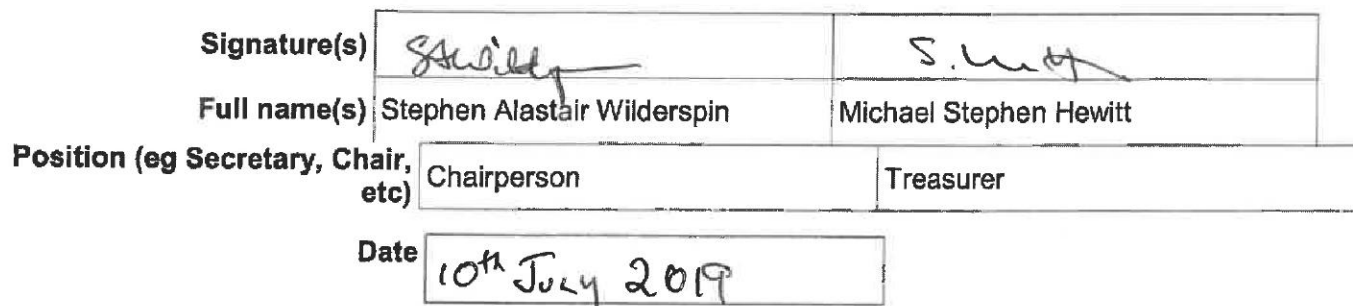 Signature(s) SAWilderspin S. Hewitt
Full name(s) Stephen Alastair Wilderspin Michael Stephen Hewitt
Position (eg Secretary, Chair,
etc) Chairperson Treasurer
Date 10th July 2019